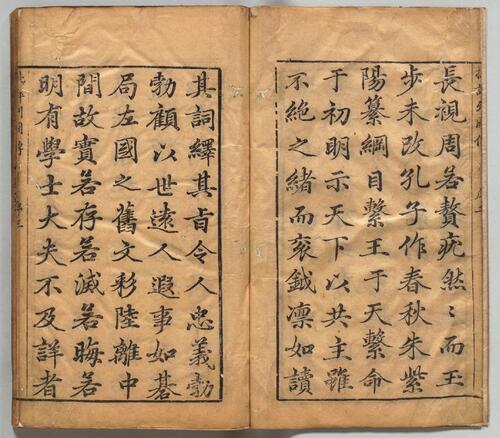 長視周若贅疣然〻而王
步未改孔子作春秋朱紫
陽纂綱目繫王于天繫命
于初明示天下以共主雖
不絶之緒而衮鉞凛如讀
其詞繹其旨令人忠義勃
勃顧以世遠人遐事如碁
局左國之舊文彩陸離中
間故實若存若滅若晦若
明有學士大夫不及詳者